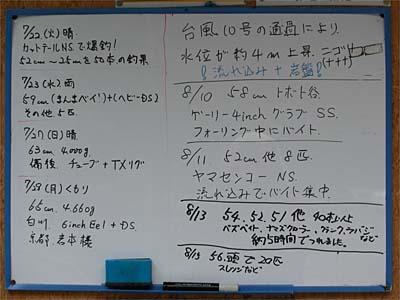 7/22 (火) 晴
カットテールN.S.で爆釣!
52cm〜25cmを50本の釣果
7/23 (水) 雨
59cm (まんまベイト)+(ヘビーDS)
その他 5匹
7/27 (日) 晴
63cm 4,000g
備後 チューブ+TXリグ
7/28 (月) くもり
66cm. 4.660g
白川 6inch Eel + DS.
京都. 岩本様
台風10号の通過により
水位が約4m上昇. ニゴリ
(+++)
流れ込み + 岩盤!
8/10 58cm トボト谷
ゲーリー4inchグラブ SS.
フォーリング中にバイト.
8/11 52cm 他8匹
ヤマセンコー NS.
流れ込みでバイト集中.
8/13 54.52.51 他 40本以上
ベズベイト,ナマズクローラー,クランク,ラバジ
などで
約5時間でつれました.
8/15 56.頭で20匹
スレッジなど